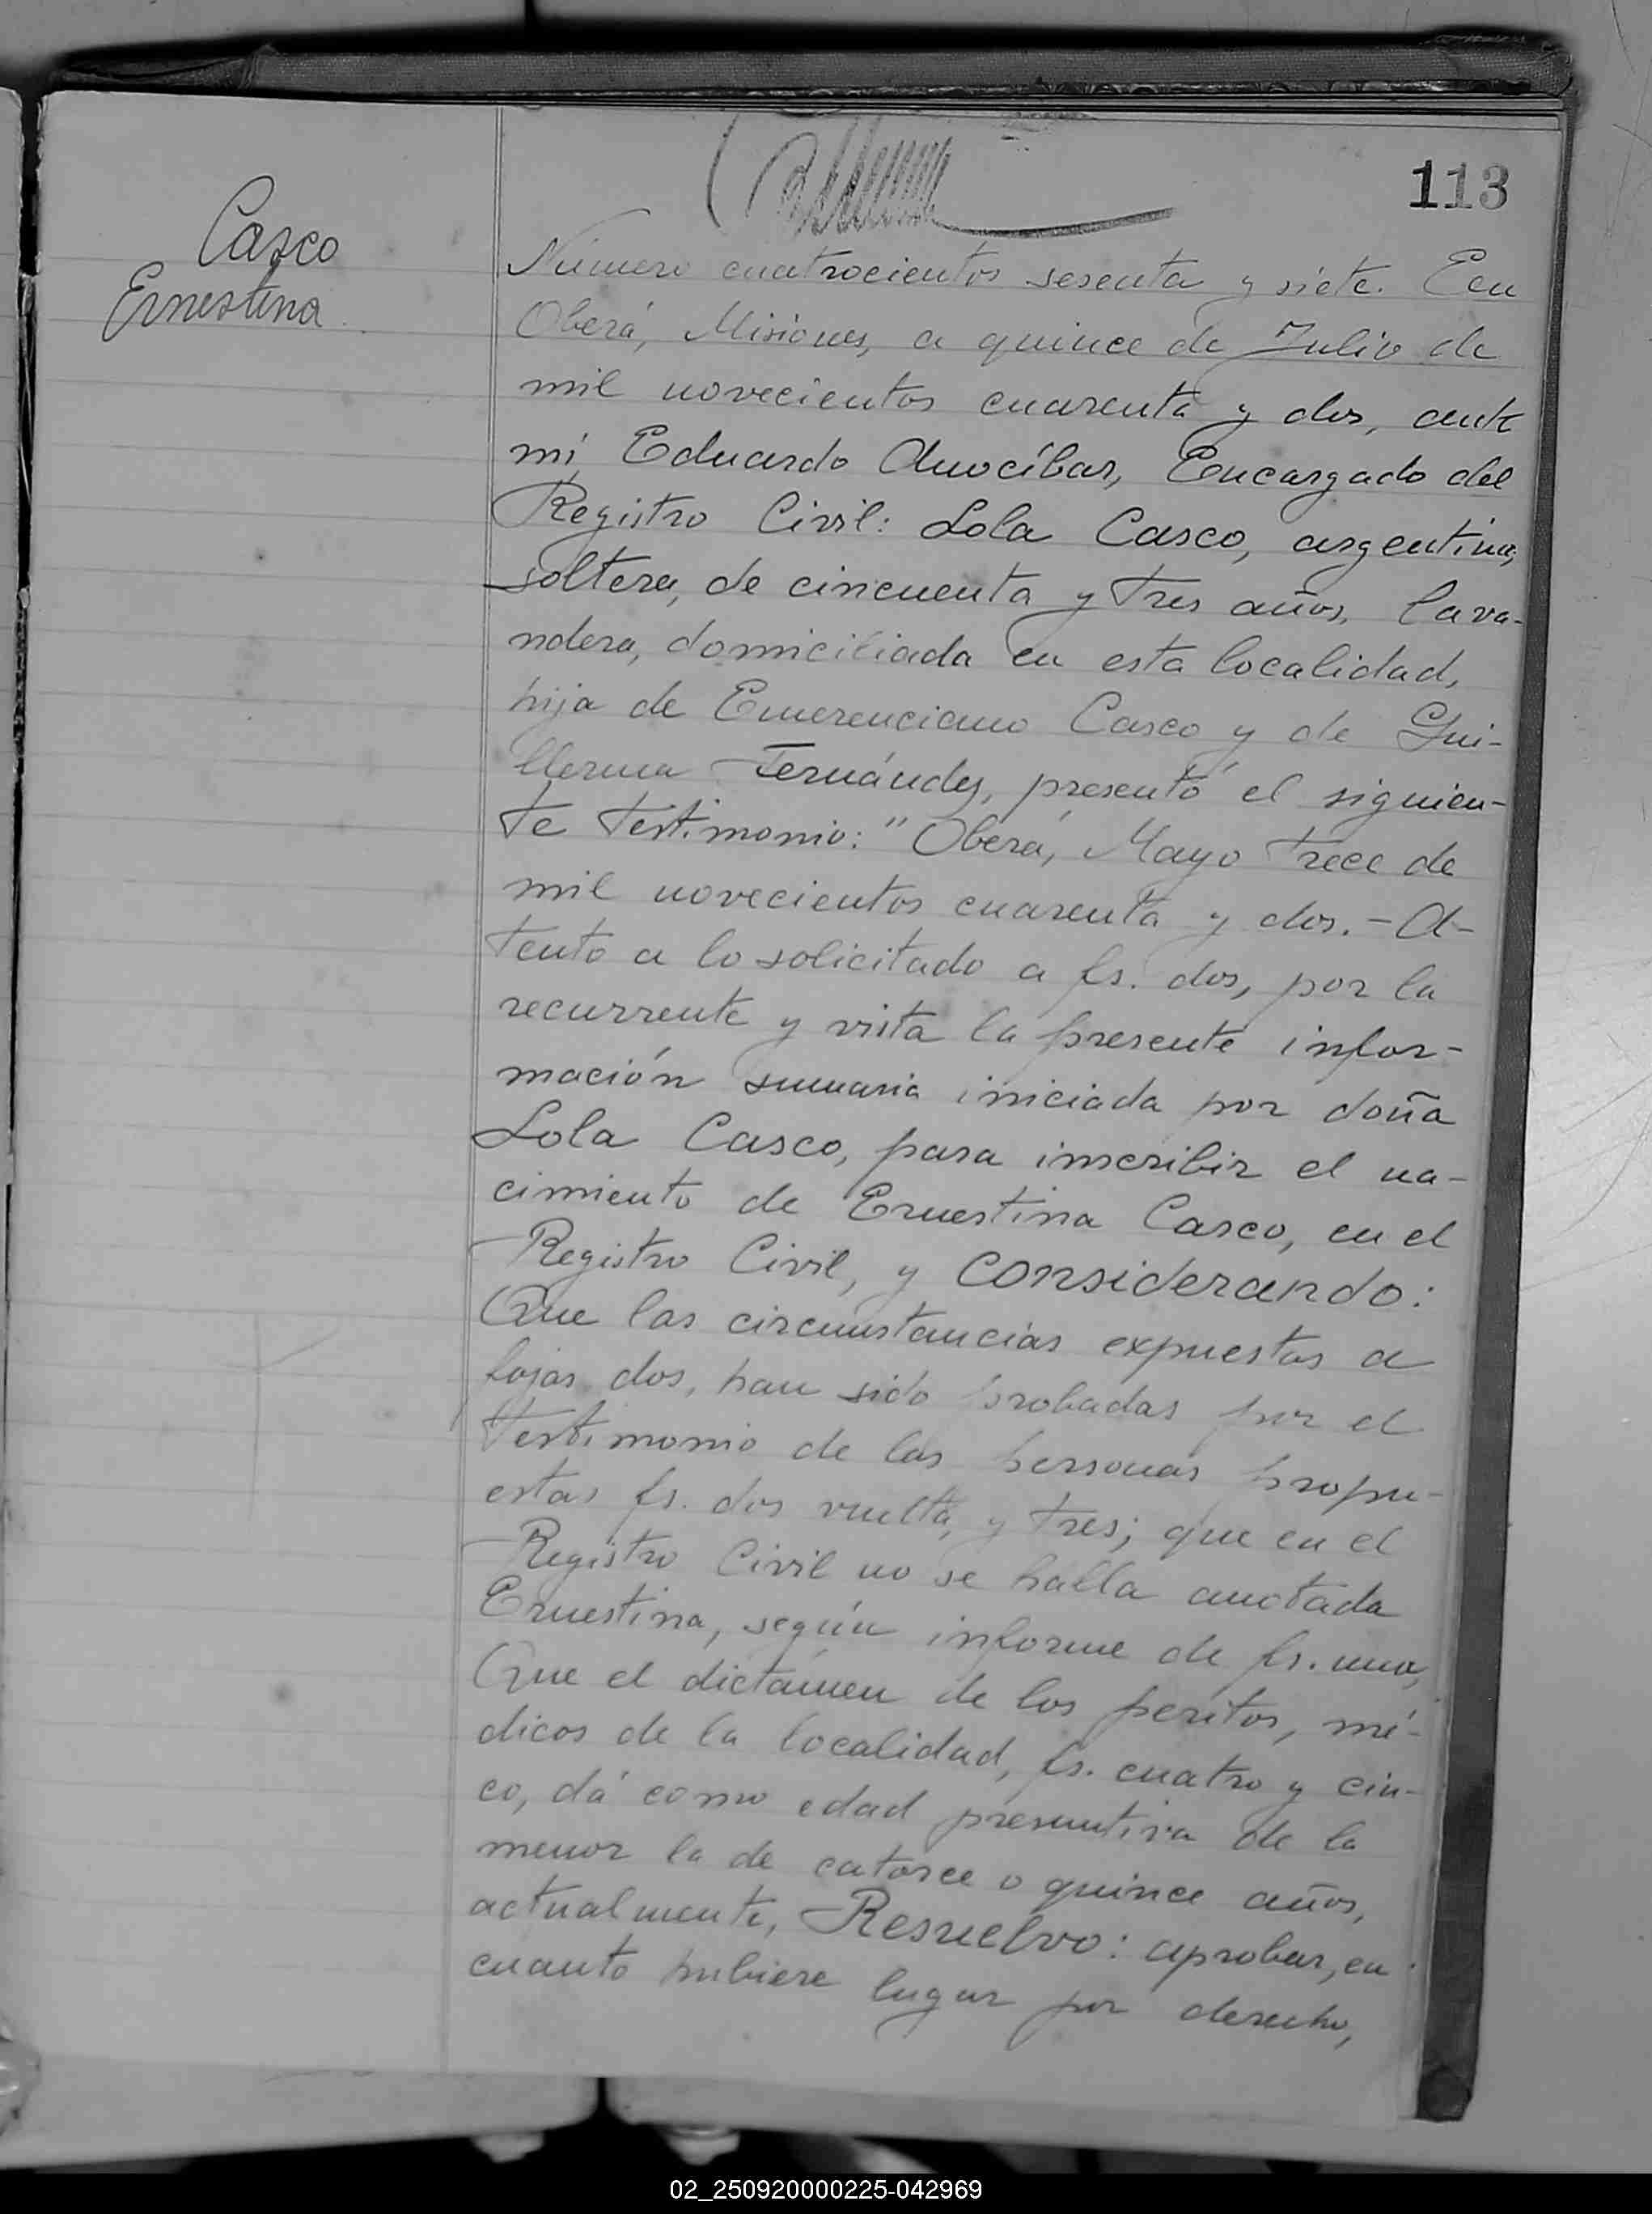 113
Casco
Ernestina
Número cuatrocientos sesenta y siete. En
Oberá, Misiones, a quince de Julio de
mil novecientos cuarenta y dos, ante
mí, Eduardo Anocíbar, Encargado del
Registro Civil: Lola Casco, argentina,
soltera, de cincuenta y tres años, lava-
ndera, domiciliada en esta localidad,
hija de Emerenciano Casco y de Gui-
llerma Fernández, presentó el siguien-
te testimonio: "Oberá, Mayo trece de
mil novecientos cuarenta y dos. - A-
tento a lo solicitado a fs. dos, por la
recurrente y vista la presente infor-
mación sumaria iniciada por doña
Lola Casco, para inscribir el na-
cimiento de Ernestina Casco, en el
Registro Civil, y Considerando:
Que las circunstancias expuestas a
fojas dos, han sido probadas por el
testimonio de las personas propu-
estas fs. dos vuelta, y tres; que en el
Registro Civil no se halla anotada
Ernestina, según informe de fs. uno,
Que el dictámen de los peritos, mé-
dicos de la localidad, fs. cuatro y cin-
co, dá como edad presuntiva de la
menor la de catorce o quince años,
actualmente, Resuelvo: aprobar, en
cuanto hubiere lugar por derecho,
02_250920000225-042969